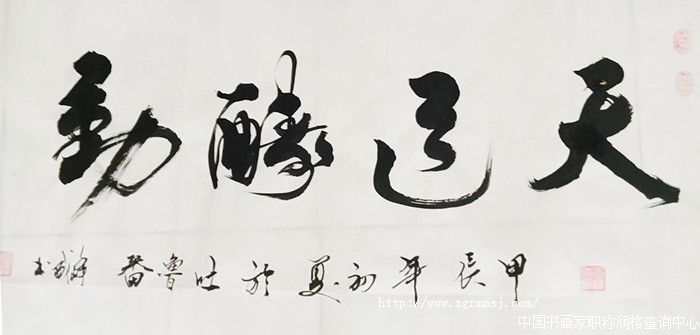 天道酬勤
甲辰年初夏於吐魯番 书
http://www.zgrmmsj.com/
中国书画家职称润格查询中心